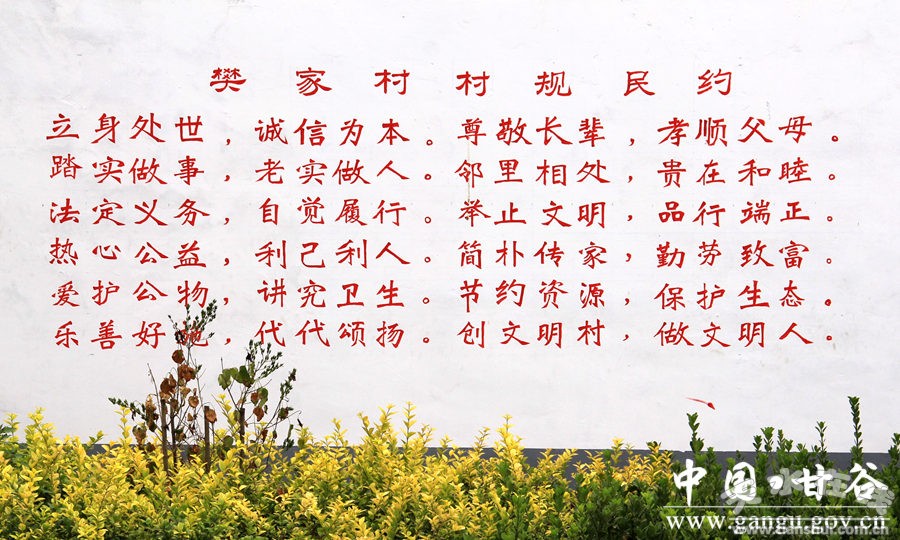 樊家村村规民约
立身处世，诚信为本。尊敬长辈，孝顺父母。
踏实做事，老实做人。邻里相处，贵在和睦。
法定义务，自觉履行。举止文明，品行端正。
热心公益，利己利人。简朴传家，勤劳致富。
爱护公物，讲究卫生。节约资源，保护生态。
乐善好施，代代颂扬。创文明村，做文明人。
中国·甘谷
www.gangu.gov.cn
www.tianshui.com.cn